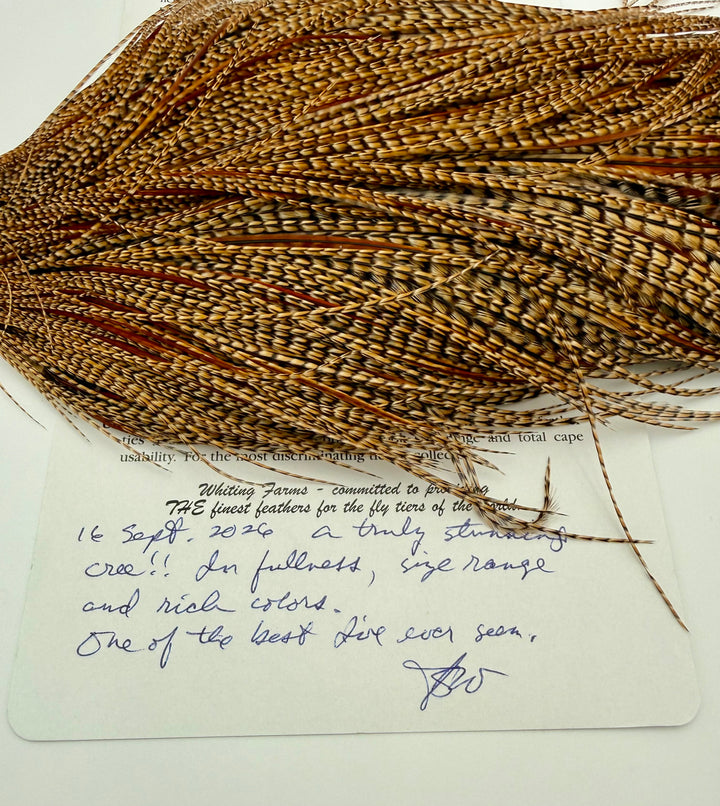 ties and total cape
usability. For the most discriminating
Whiting Farms - committed to
THE finest feathers for the fly tiers of the World.
16 Sept. 2026 a truly stunning
cree!! In fullness, size range
and rich colors.
One of the best I've ever seen.